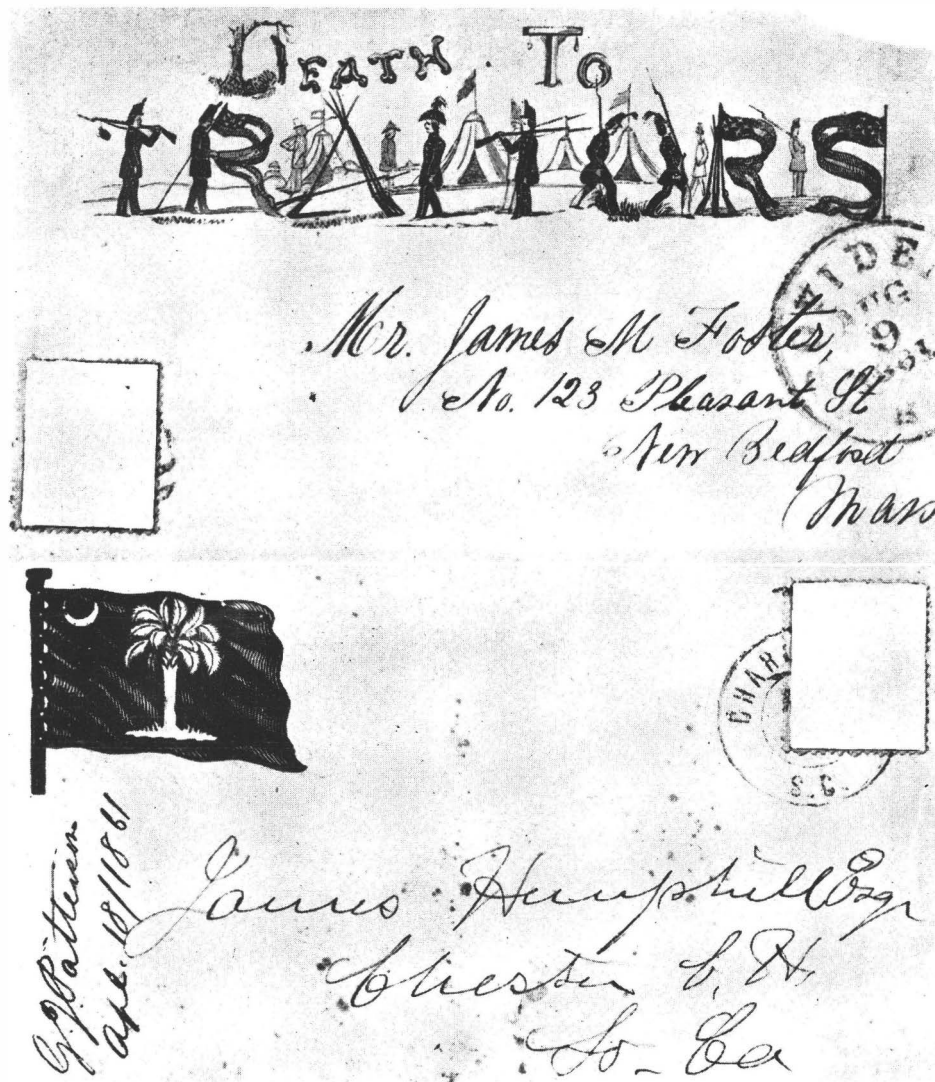 DEATH TO
TRAITORS
AUG
9
Mr. James M Foster,
No. 123 Pleasant St
New Bedford
Mass
CHAR
S.C.
G. J. Patterson
Apl. 18/1861
James Hemphill Esqr
Chester C. H.
So - Ca